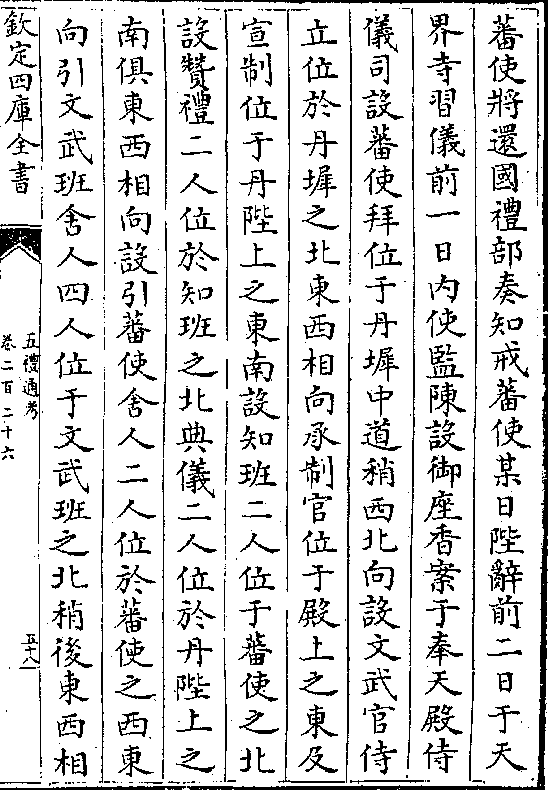 蕃使將還國禮部奏知戒蕃使某日陛辭前二日于天
界寺習儀前一日内使監陳設御座香案于奉天殿侍
儀司設蕃使拜位于丹墀中道稍西北向設文武官侍
立位於丹墀之北東西相向承制官位于殿上之東及
宣制位于丹陛上之東南設知班二人位于蕃使之北
設贊禮二人位於知班之北典儀二人位於丹陛上之
南俱東西相向設引蕃使舍人二人位於蕃使之西東
向引文武班舍人四人位于文武班之北稍後東西相
欽定四庫全書
五禮通考
卷二百二十六
五十八